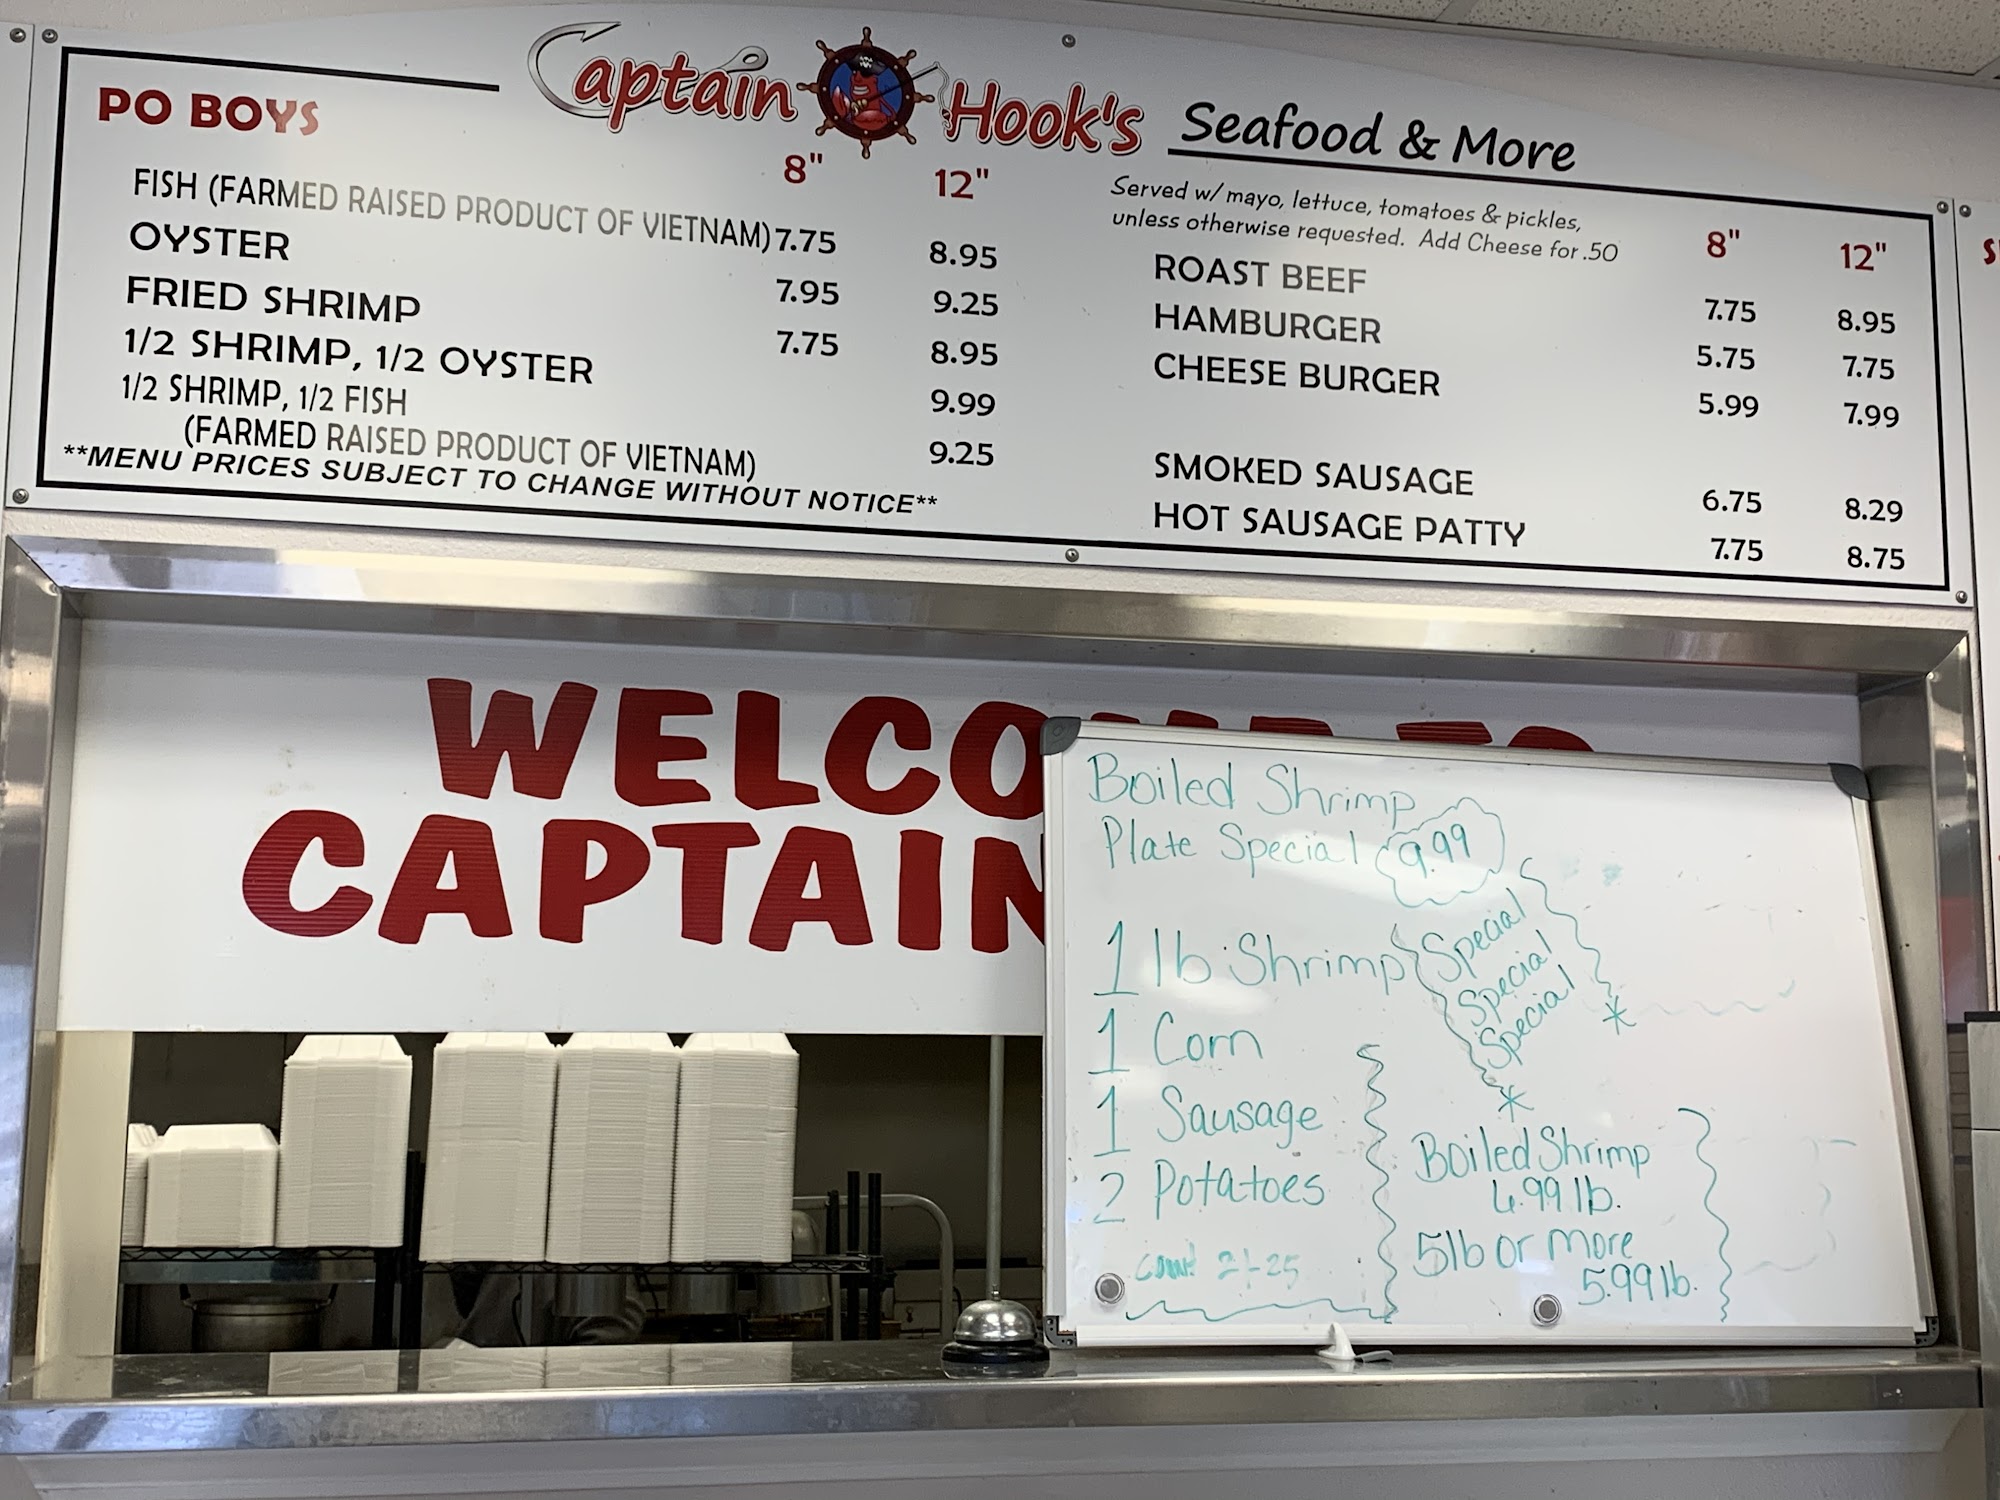 Captain Hook's Seafood & More
PO BOYS
8" 12"
FISH (FARMED RAISED PRODUCT OF VIETNAM) 7.75 8.95
OYSTER 7.95 9.25
FRIED SHRIMP 7.75 8.95
1/2 SHRIMP, 1/2 OYSTER 9.99
1/2 SHRIMP, 1/2 FISH
(FARMED RAISED PRODUCT OF VIETNAM) 9.25
**MENU PRICES SUBJECT TO CHANGE WITHOUT NOTICE**
Served w/ mayo, lettuce, tomatoes & pickles,
unless otherwise requested. Add Cheese for .50
8" 12"
ROAST BEEF 7.75 8.95
HAMBURGER 5.75 7.75
CHEESE BURGER 5.99 7.99
SMOKED SAUSAGE 6.75 8.29
HOT SAUSAGE PATTY 7.75 8.75
WELCOME TO
CAPTAIN
Boiled Shrimp
Plate Special 9.99
1 lb Shrimp
1 Corn
1 Sausage
2 Potatoes
21-25
Special
Special
Special
Boiled Shrimp
6.99 lb.
5lb or more
5.99 lb.